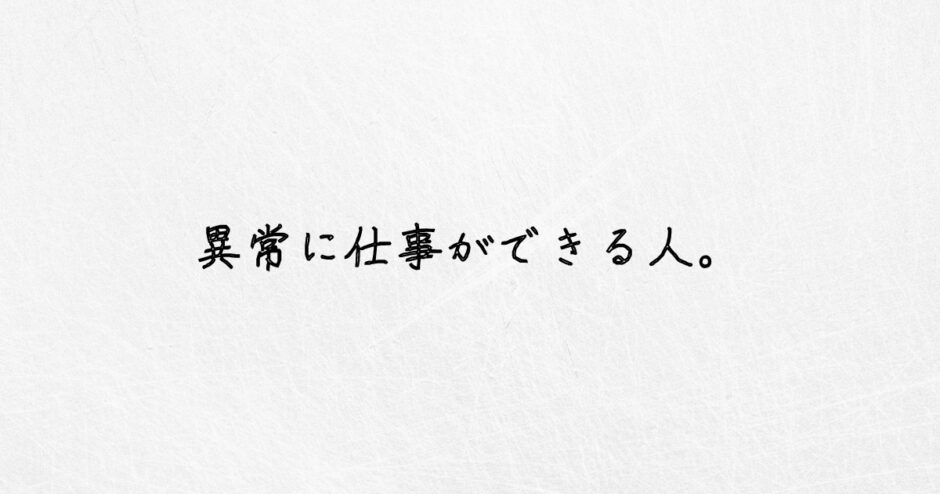 異常に仕事ができる人。